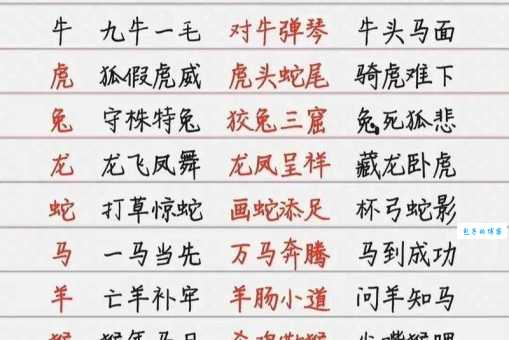 牛 九牛一毛 对牛弹琴 牛头马面
虎 狐假虎威 虎头蛇尾 骑虎难下
兔 守株特兔 狡兔三窟 兔死狐悲
龙 龙飞凤舞 龙凤呈祥 藏龙卧虎
蛇 打草惊蛇 画蛇添足 杯弓蛇影
马 一马当先 万马奔腾 马到成功
羊 亡羊补牢 羊肠小道 问羊知马